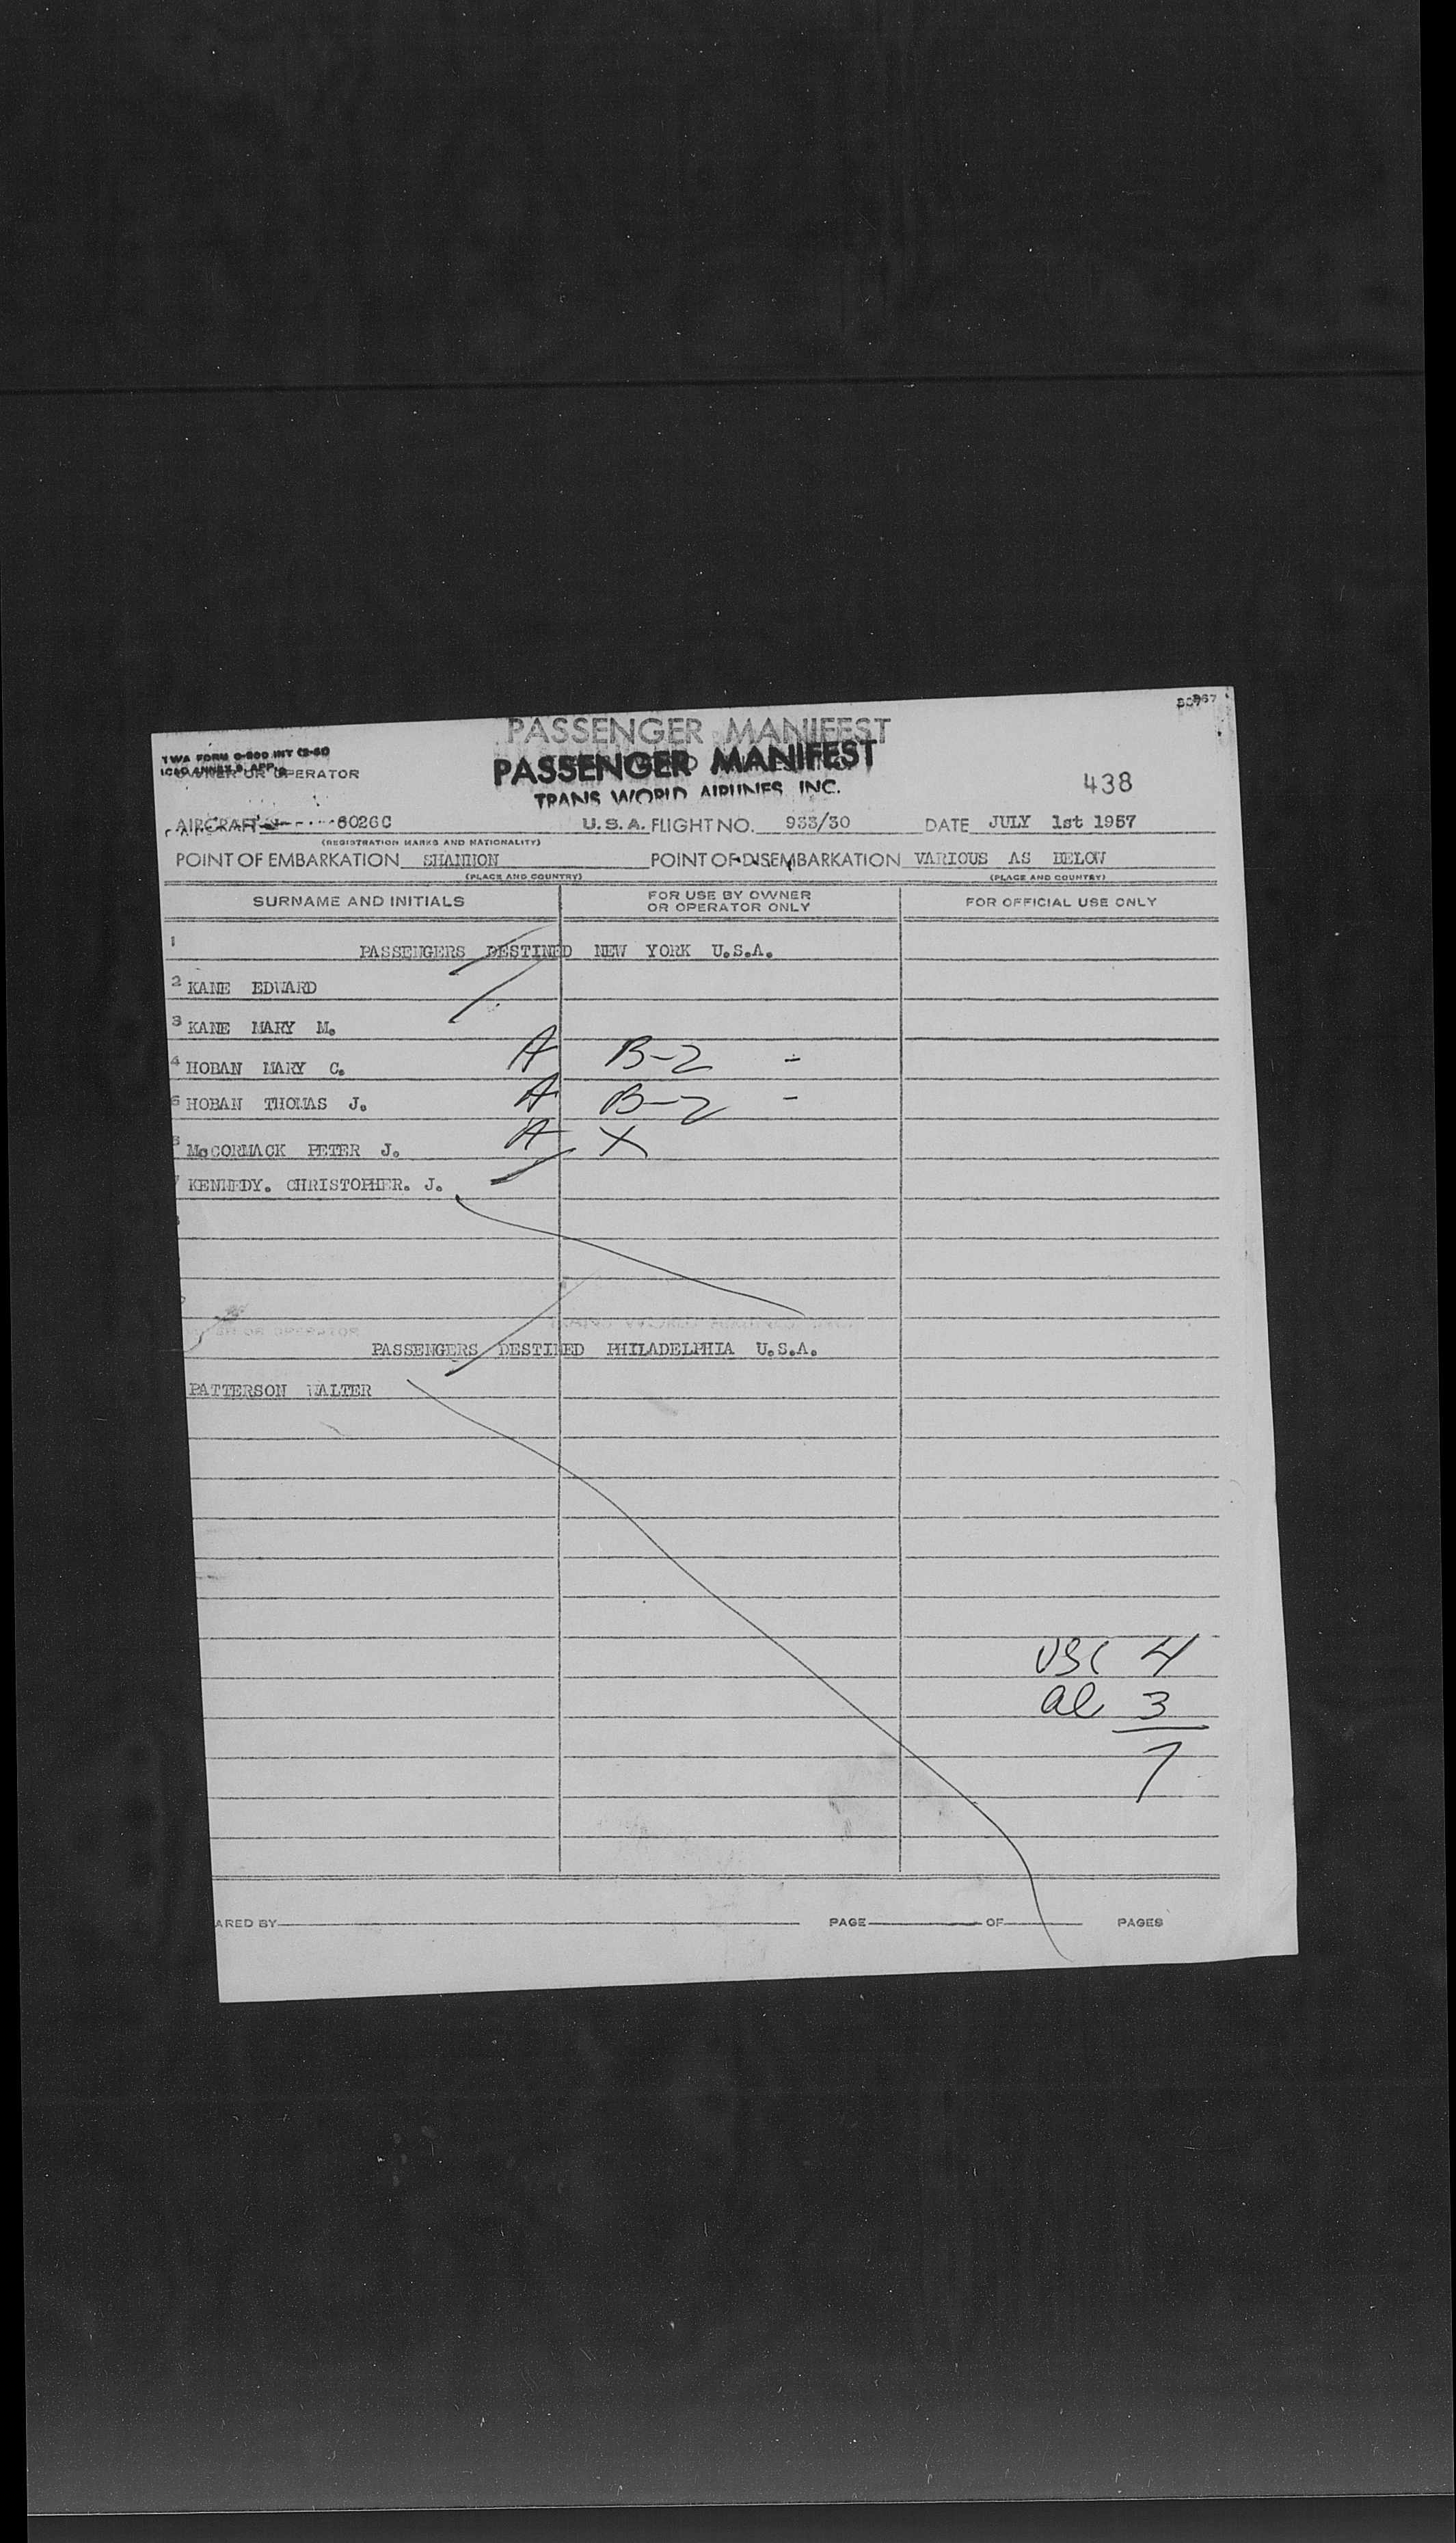 PASSENGER MANIFEST
TWA FORM
PASSENGER MANIFEST
OWNER OR OPERATOR
TRANS WORLD AIRLINES, INC.
438
AIRCRAFT 6026C U.S.A. FLIGHT NO. 933/30 DATE JULY 1st 1957
(REGISTRATION MARKS AND NATIONALITY)
POINT OF EMBARKATION SHANNON POINT OF DISEMBARKATION VARIOUS AS BELOW
(PLACE AND COUNTRY) (PLACE AND COUNTRY)
SURNAME AND INITIALS FOR USE BY OWNER OR OPERATOR ONLY FOR OFFICIAL USE ONLY
1 PASSENGERS DESTINED NEW YORK U.S.A.
2 KANE EDWARD
3 KANE MARY M.
4 HOBAN MARY C. A B-2 -
5 HOBAN THOMAS J. A B-2 -
McCORMACK PETER J. A X
KENNEDY. CHRISTOPHER. J.
OR OPERATOR
PASSENGERS DESTINED PHILADELPHIA U.S.A.
PATTERSON WALTER
USC 4
al 3
7
ARED BY PAGE OF PAGES